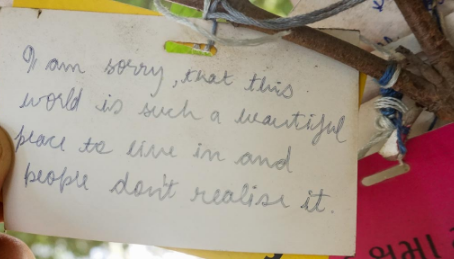 I am sorry, that this
world is such a beautiful
peace to live in and
people don't realise it.
ક્ષમા